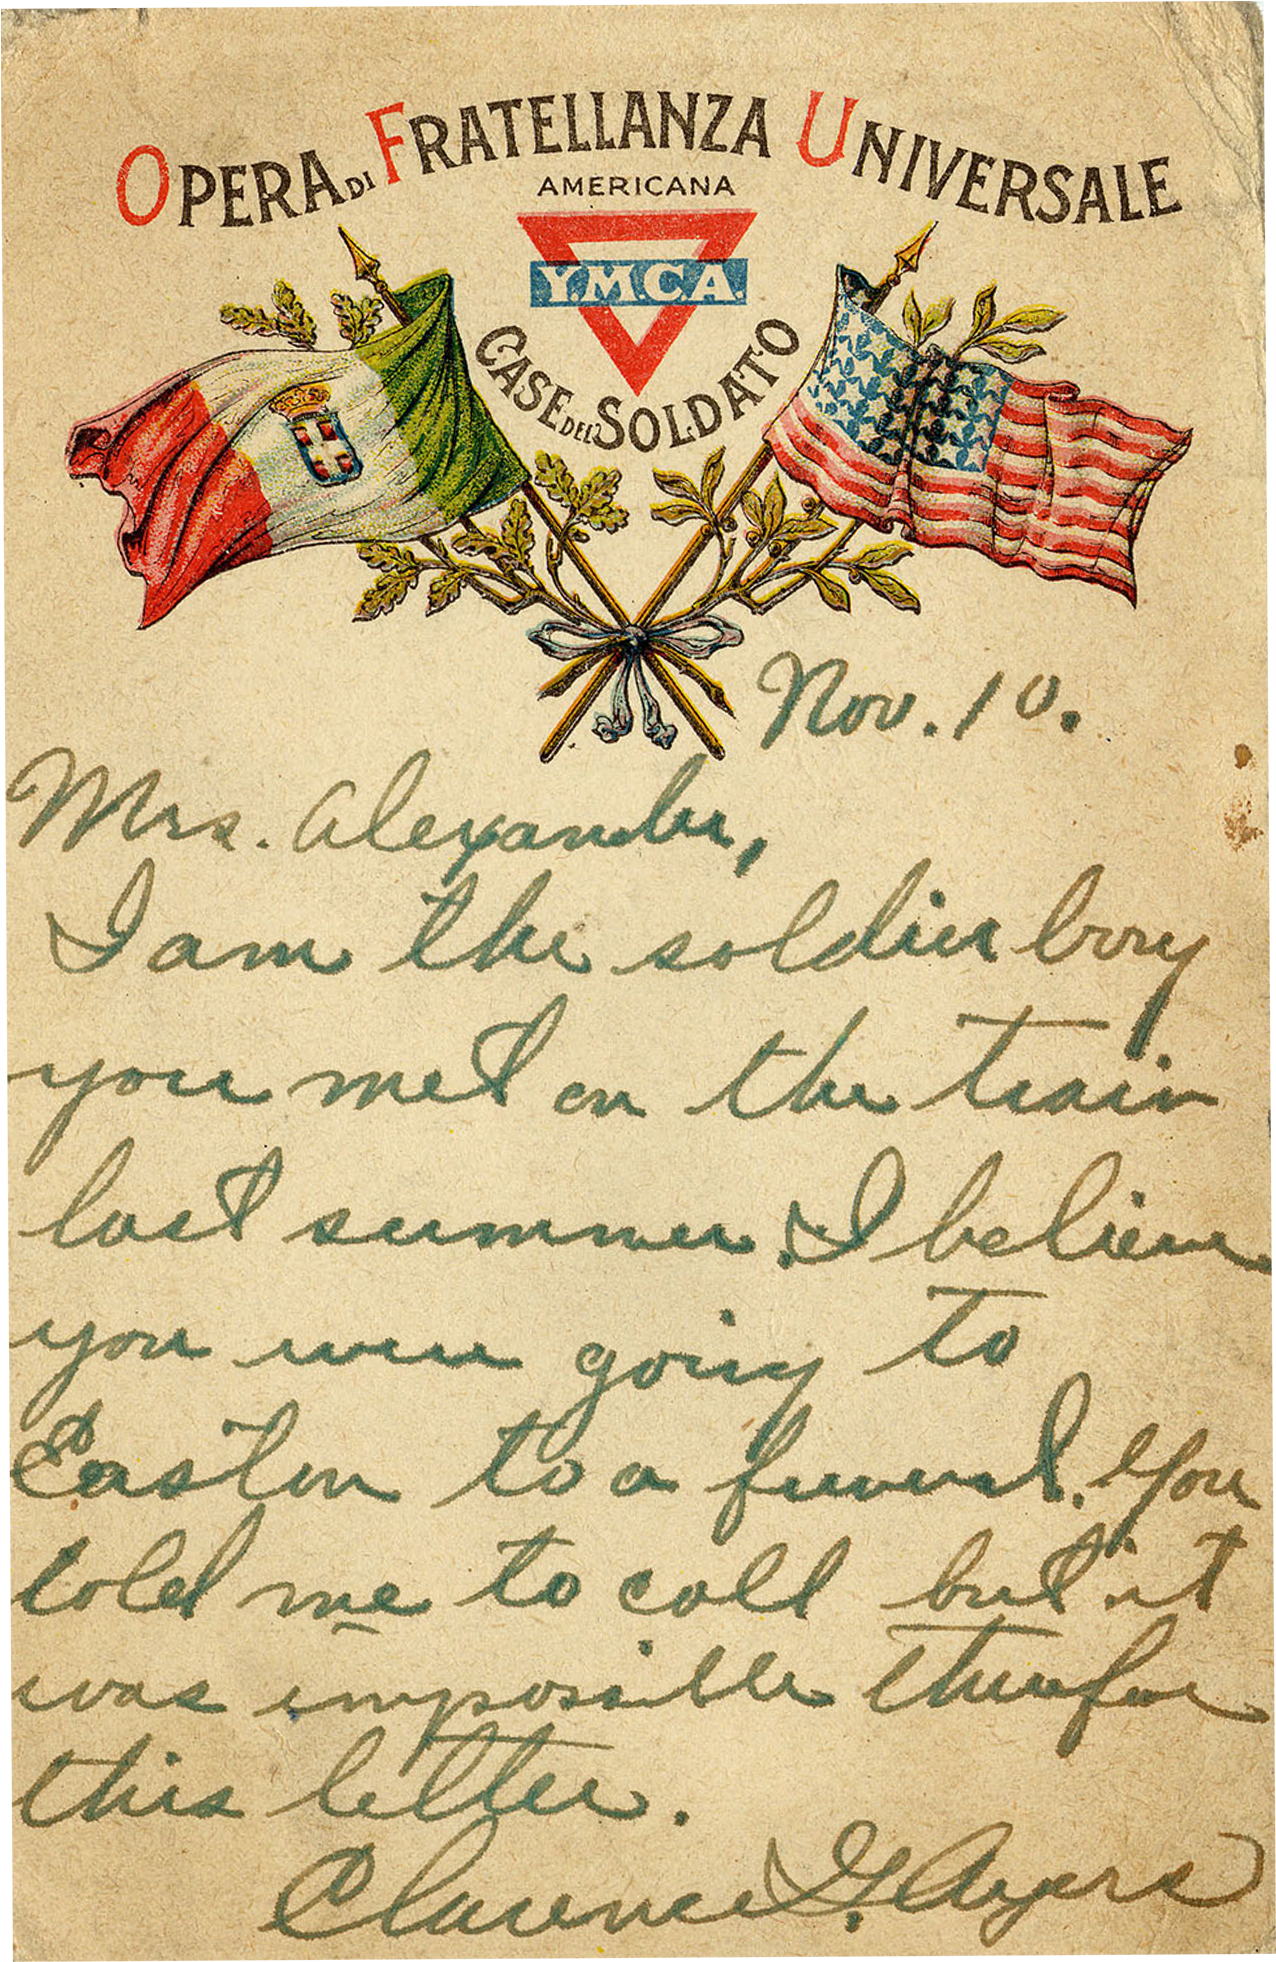 OPERA DI FRATELLANZA UNIVERSALE
AMERICANA
Y.M.C.A.
CASE DEL SOLDATO
Nov. 10.
Mrs. Alexander,
I am the soldier boy
you met on the train
last summer. I believe
you were going to
Easton to a funeral. You
told me to call but it
was impossible therefore
this letter.
Clarence G. Ayers